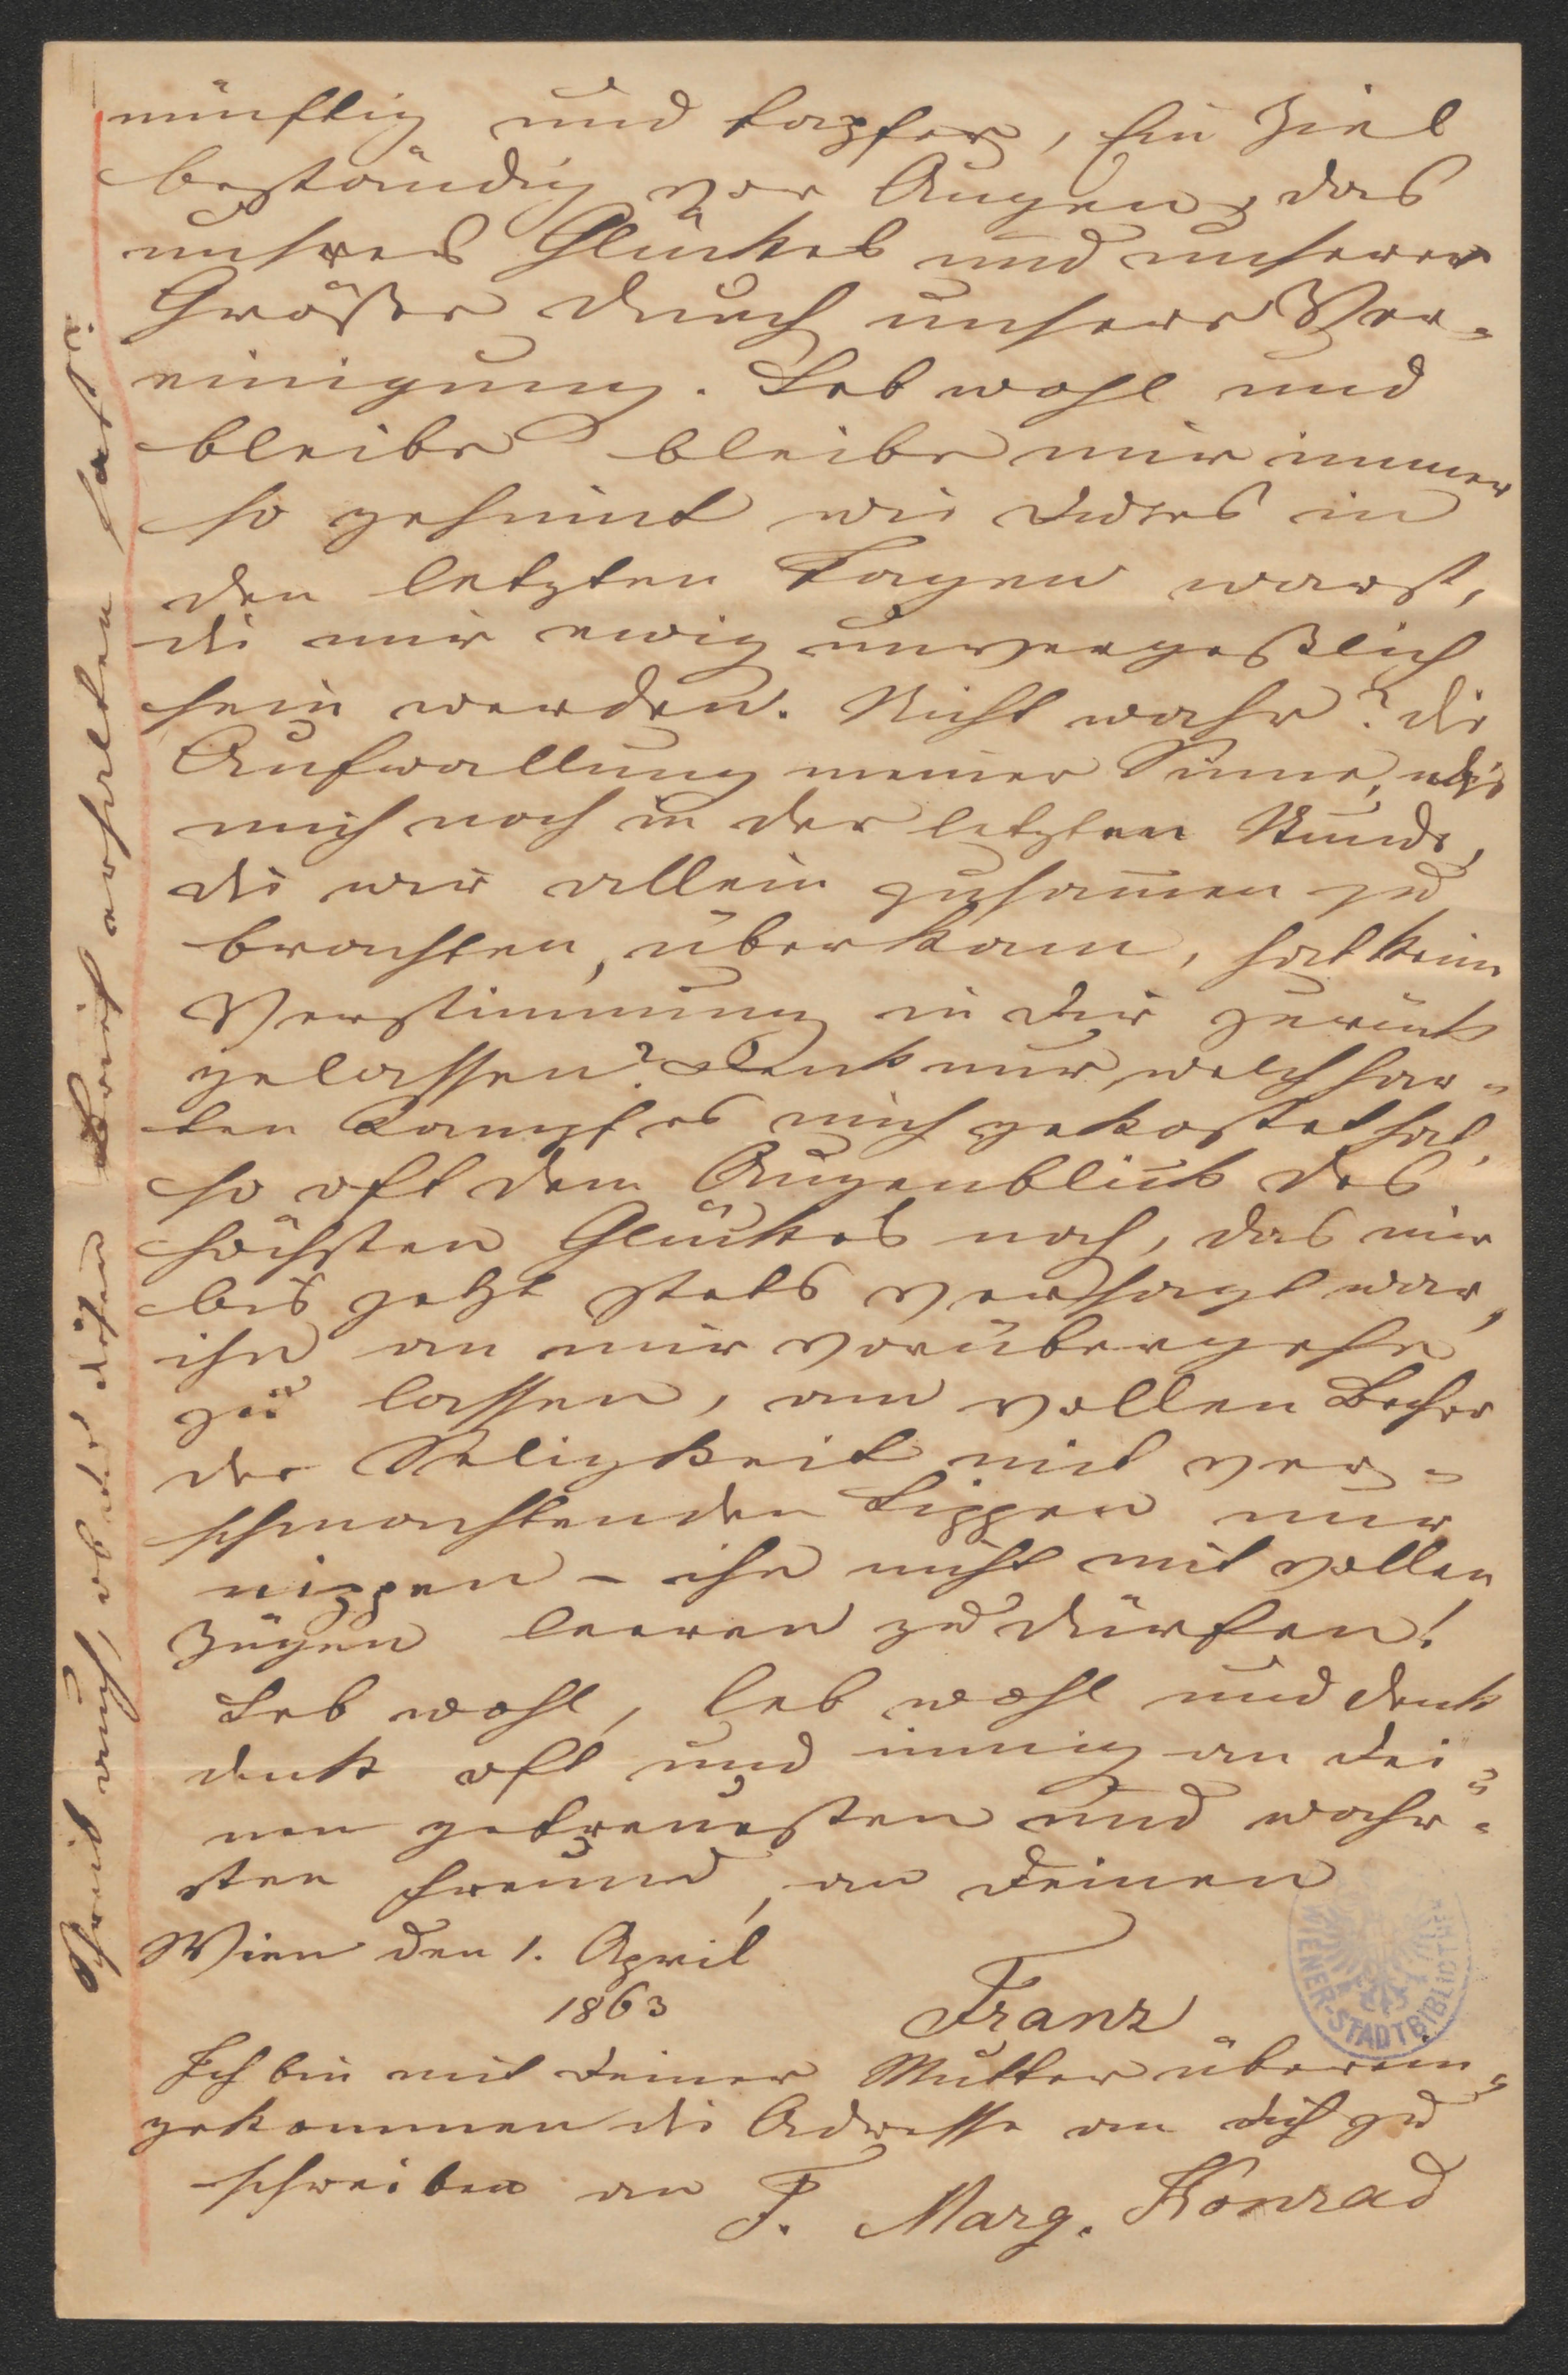 nünftig und tapfer, Ein Ziel
beständig vor Augen, das
unseres Glückes und unserer
Größe durch unsere Ver-
einigung. Leb wohl und
bleibe bleibe mir immer
so gesinnt wie Du es in
den letzten Tagen warst,
die mir ewig unvergeßlich
sein werden. Nicht wahr? die
Aufwallung meiner Sinne, die
mich noch in der letzten Stunde,
die wir allein zusammen zu
brachten, überkam, hat keine
Verstimmung in Dir zurück
gelassen? Denk nur, welch har-
ten Kampf es mich gekostet hat,
so oft dem Augenblick des
höchsten Glückes noch, das mir
bis jetzt stets versagt war,
ihn an mir vorübergehn
zu lassen, am vollen Becher
der Seligkeit mit ver-
schmachtenden Lippen nur
nippen - ihn nicht mit vollen
Zügen leeren zu dürfen!
Leb wohl, leb wohl und denk
denk oft und innig an Dei-
nen getreuesten und wahr-
sten Freund, an Deinen
Wien den 1. April
1863
Franz
Ich bin mit Deiner Mutter überein-
gekommen die Adresse an Dich zu
schreiben an F. Marg. Konrad
Schreib auch, ob der Brief erhalten hat
WIENER-STADTBIBLIOTHEK